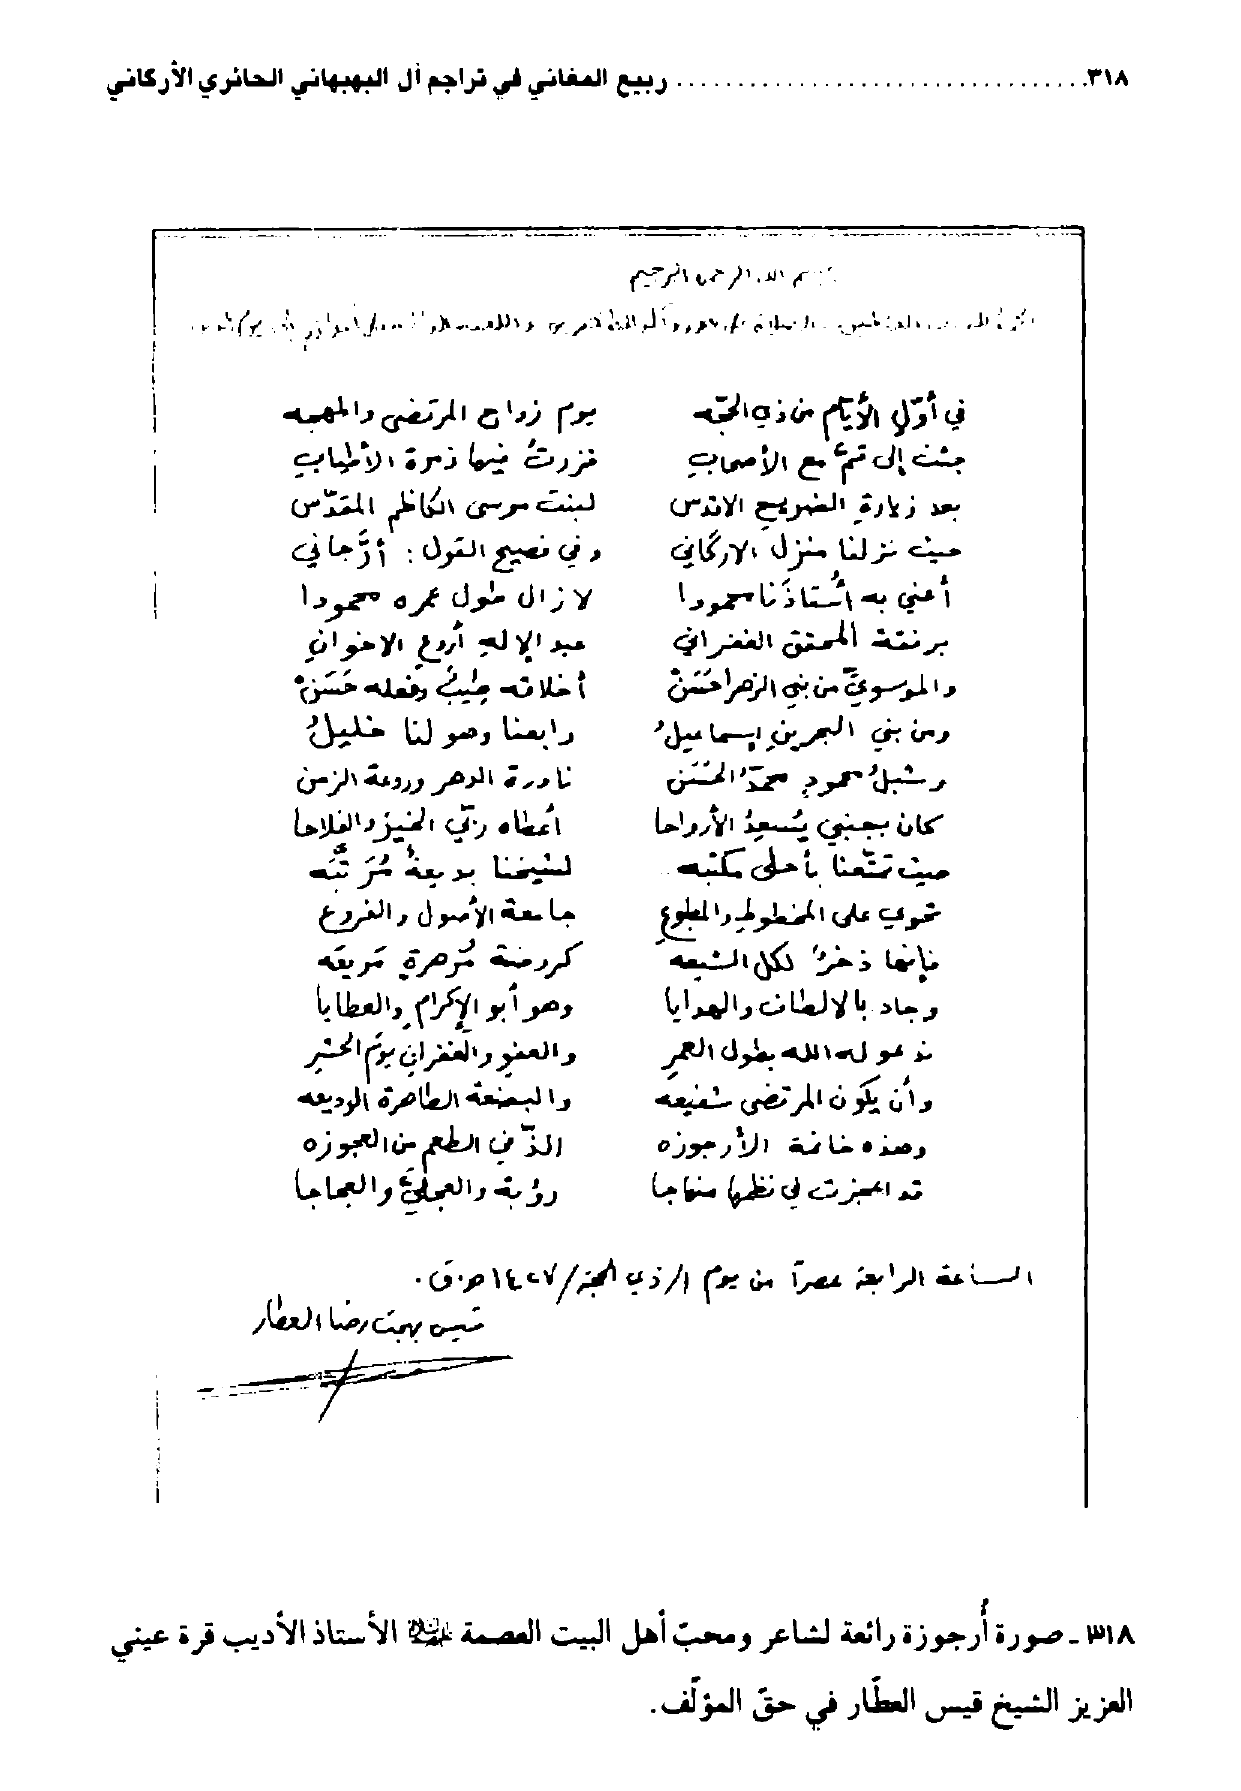 ٣١٨.................................ربيع المغاني في تراجم آل البهبهاني الحائري الأركاني
بسم الله الرحمن الرحيم
في أوّلِ الأيّامِ من ذي الحجّه يوم زواج المرتضى والمهجه
جئت إلى قمٍّ مع الأصحابِ فزرتُ فيها زمرة الأطيابِ
بعد زيارةِ الضريحِ الاقدس لبنت موسى الكاظم المقدّس
حيث نزلنا منزل الاركاني وفي فصيح القول: أرّجاني
أعني به أُستاذَنا محمودا لا زال طول عمره محمودا
برفقة المحقق الغفراني عبد الإلهِ أروع الاخوانِ
والموسويِّ من بني الزهرا حَسَنْ أخلاقه طِيبٌ وفعله حَسَنْ
ومن بني البحرينِ إسماعيلُ رابعنا وصولنا خليلُ
وشبلُ محمودٍ محمّدُ الحَسَن نادرة الدهر وروعة الزمن
كان بجنبي يُسعِدُ الأرواحا أعطاه ربّي الخيرَ والفلاحا
حيث تمتّعنا بأحلى مكتبه لشيخنا بديعةً مُرَتَّبَه
تحوي على المخطوطِ والمطبوعِ جامعة الأصول والفروع
فإنها ذخرٌ لكل الشيعه كروضة مُزهرةٍ مَريعَه
وجاد بالالطاف والهدايا وهو أبو الإكرامِ والعطايا
ندعو له الله بطول العمرِ والعفوِ والغفرانِ يومَ الحشرِ
وأن يكون المرتضى شفيعه والبضعة الطاهرة الوديعه
وهذه خاتمة الأرجوزه ألذّ في الطعم من العجوزه
قد اعجزت في نظمها منهاجا رؤبة والعجليَّ والعجاجا
الساعة الرابعة عصراً من يوم ١/ذي الحجة/١٤٢٧ هـ.ق.
قيس بهجت رضا العطار
٣١٨ ـ صورة أُرجوزة رائعة لشاعر ومحبّ أهل البيت العصمة عليهم السلام الأستاذ الأديب قرة عيني
العزيز الشيخ قيس العطّار في حقّ المؤلّف.